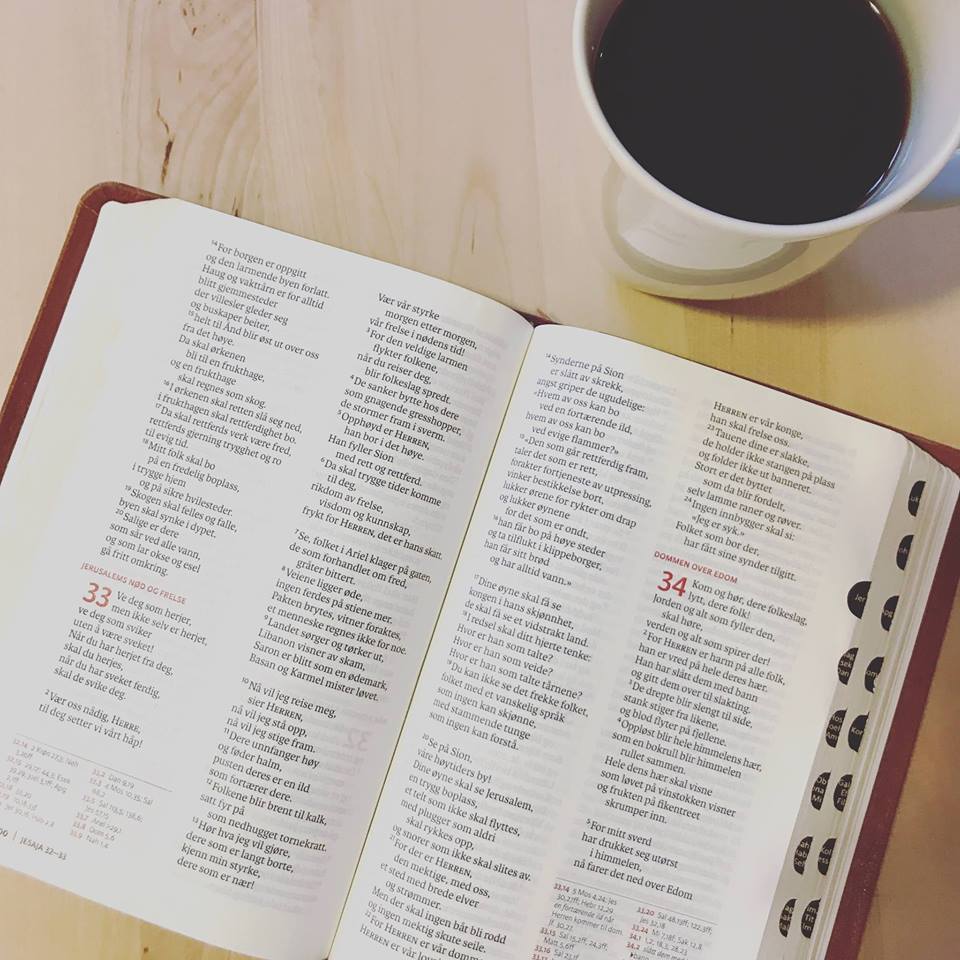 14 For borgen er oppgitt
og den larmende byen forlatt.
Haug og vakttårn er for alltid
blitt gjemmesteder
der villesler gleder seg
og buskaper beiter,
15 helt til Ånd blir øst ut over oss
fra det høye.
Da skal ørkenen
bli til en frukthage,
og en frukthage
skal regnes som skog.
16 I ørkenen skal retten slå seg ned,
i frukthagen skal rettferdighet bo.
17 Da skal rettferds verk være fred,
rettferds gjerning trygghet og ro
til evig tid.
18 Mitt folk skal bo
på en fredelig boplass,
i trygge hjem
og på sikre hvilesteder.
19 Skogen skal felles og falle,
byen skal synke i dypet.
20 Salige er dere
som sår ved alle vann,
og som lar okse og esel
gå fritt omkring.
JERUSALEMS NØD OG FRELSE
33 Ve deg som herjer,
men ikke selv er herjet,
ve deg som sviker
uten å være sveket!
Når du har herjet fra deg,
skal du herjes,
når du har sveket ferdig,
skal de svike deg.
2 Vær oss nådig, HERRE,
til deg setter vi vårt håp!
Vær vår styrke
morgen etter morgen,
vår frelse i nødens tid!
3 For den veldige larmen
flykter folkene,
når du reiser deg,
blir folkeslag spredt.
4 De sanker bytte hos dere
som gnagende gresshopper,
de stormer fram i sverm.
5 Opphøyd er HERREN,
han bor i det høye.
Han fyller Sion
med rett og rettferd.
6 Da skal trygge tider komme
til deg,
rikdom av frelse,
visdom og kunnskap,
frykt for HERREN, det er hans skatt.
7 Se, folket i Ariel klager på gaten,
de som forhandlet om fred,
gråter bittert.
8 Veiene ligger øde,
ingen ferdes på stiene mer.
Pakten brytes, vitner foraktes,
et menneske regnes ikke for noe.
9 Landet sørger og tørker ut,
Libanon visner av skam,
Saron er blitt som en ødemark,
Basan og Karmel mister løvet.
10 Nå vil jeg reise meg,
sier HERREN,
nå vil jeg stå opp,
nå vil jeg stige fram.
11 Dere unnfanger høy
og føder halm,
pusten deres er en ild
som fortærer dere.
12 Folkene blir brent til kalk,
satt fyr på
som nedhugget tornekratt.
13 Hør hva jeg vil gjøre,
dere som er langt borte,
kjenn min styrke,
dere som er nær!
JESAJA 32–33
14 Synderne på Sion
er slått av skrekk,
angst griper de ugudelige:
«Hvem av oss kan bo
ved en fortærende ild,
hvem av oss kan bo
ved evige flammer?»
15 «Den som går rettferdig fram,
taler det som er rett,
forakter fortjeneste av utpressing,
vinker bestikkelse bort,
lukker ørene for rykter om drap
og lukker øynene
for det som er ondt,
16 han får bo på høye steder
og ta tilflukt i klippeborger,
han får sitt brød
og har alltid vann.»
17 Dine øyne skal få se
kongen i hans skjønnhet,
de skal få se et vidstrakt land.
18 I redsel skal ditt hjerte tenke:
Hvor er han som talte?
Hvor er han som veide?
Hvor er han som talte tårnene?
19 Du kan ikke se det frekke folket,
folket med et vanskelig språk
som ingen kan skjønne,
med stammende tunge
som ingen kan forstå.
20 Se på Sion,
våre høytiders by!
Dine øyne skal se Jerusalem,
en trygg boplass,
et telt som ikke skal flyttes,
med plugger som aldri
skal rykkes opp,
og snorer som ikke skal slites av.
21 For der er HERREN,
den mektige, med oss,
et sted med brede elver
og strømmer.
Men der skal ingen båt bli rodd
og ingen mektig skute seile.
22 For HERREN er vår dommer,
HERREN er vår
HERREN er vår konge,
han skal frelse oss.
23 Tauene dine er slakke,
de holder ikke stangen på plass
og folder ikke ut banneret.
Stort er det byttet
som da blir fordelt,
selv lamme raner og røver.
24 Ingen innbygger skal si:
«Jeg er syk.»
Folket som bor der,
har fått sine synder tilgitt.
DOMMEN OVER EDOM
34 Kom og hør, dere folkeslag,
lytt, dere folk!
Jorden og alt som fyller den,
skal høre,
verden og alt som spirer der!
2 For HERREN er harm på alle folk,
han er vred på hele deres hær.
Han har slått dem med bann
og gitt dem over til slakting.
3 De drepte blir slengt til side,
stank stiger fra likene,
og blod flyter på fjellene.
4 Oppløst blir hele himmelens hær,
som en bokrull blir himmelen
rullet sammen.
Hele dens hær skal visne
som løvet på vinstokken visner
og frukten på fikentreet
skrumper inn.
5 For mitt sverd
har drukket seg utørst
i himmelen,
nå farer det ned over Edom
Jer